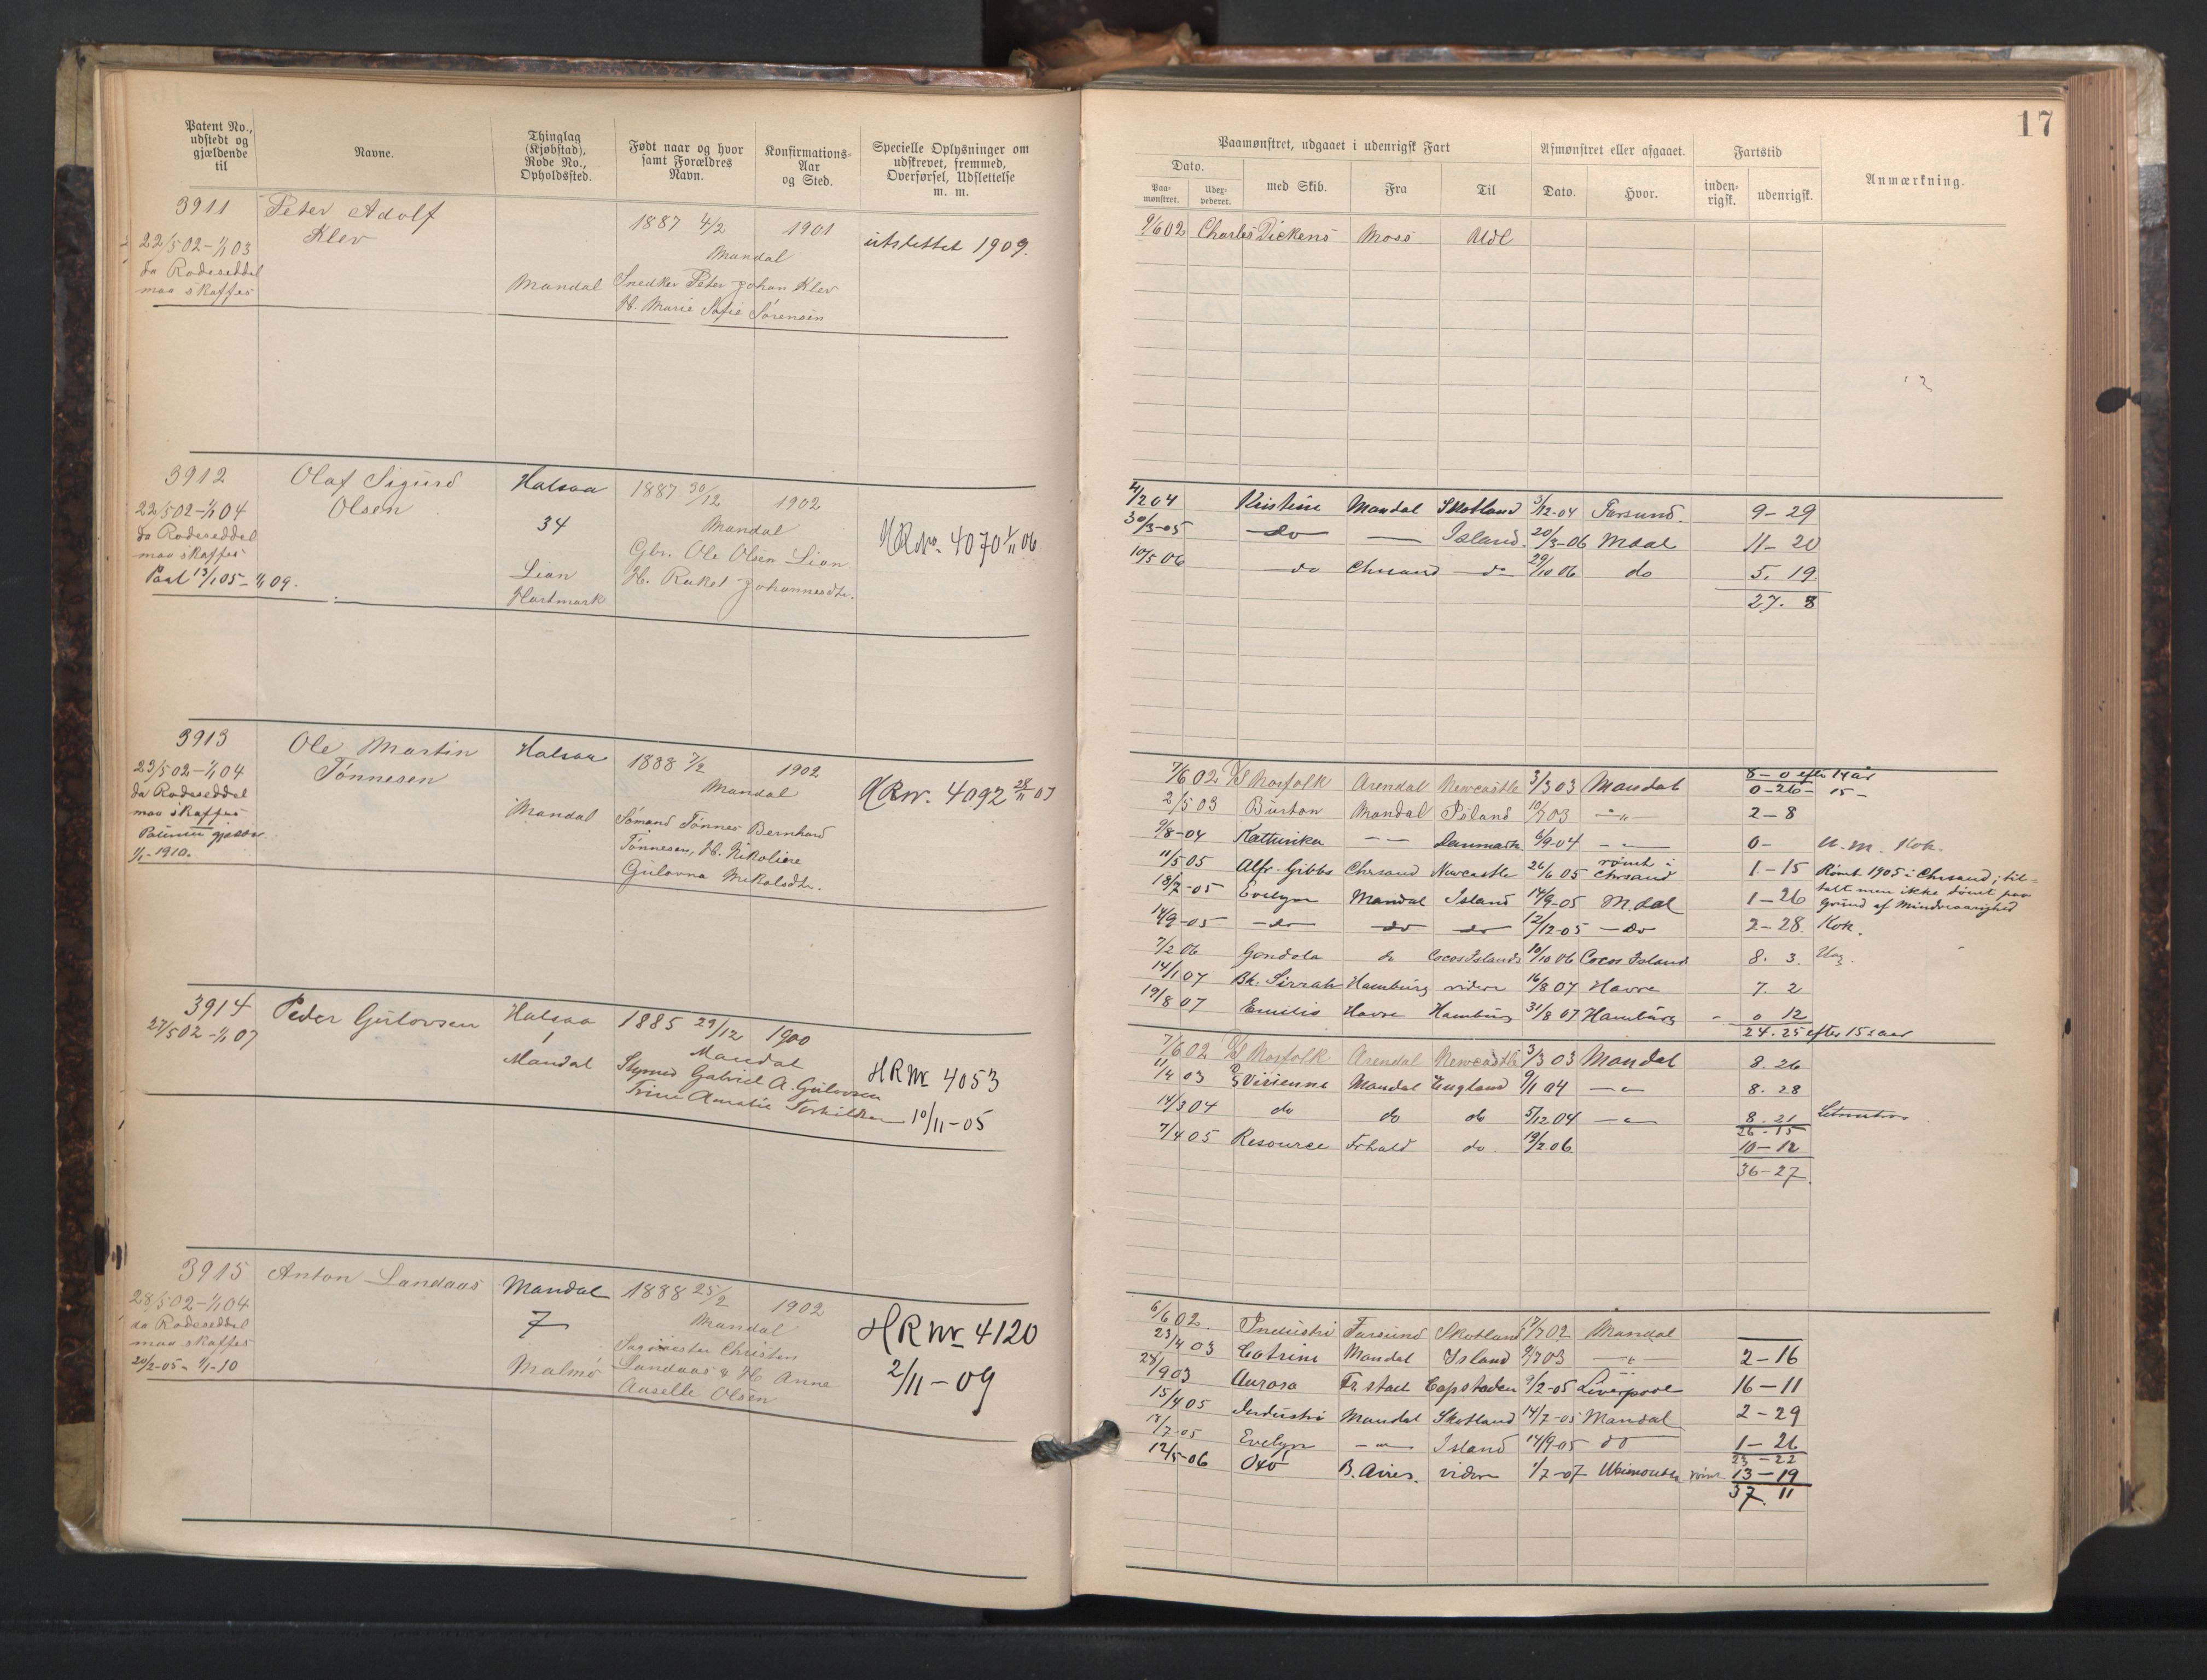 Patent No., udstedt og gjældende til
Navne.
Thinglag (Kjøbstad), Rode No., Opholdssted.
Født naar og hvor samt Forældres Navn.
Konfirmations-Aar og Sted.
Specielle Oplysninger om udskrevet, fremmed, Overførsel, Udslettelse m. m.
3911 Peter Adolf
Klev
1887 4/2 1901
Mandal
utslettet 1909.
22/5 02 - 1/1 03
da Rodeseddel
maa skaffes
Mandal Snedker Peter Johan Klev
H. Marie Sofie Sørensen
3912 Olaf Sigurd
Olsen
Halsaa
34
Lian
Hartmark
1887 30/12 1902
Mandal
Gbr. Ole Olsen Lian
H. Rakel Johannesdtr.
22/5 02 - 1/1 04
da Rodeseddel
maa skaffes
13/1 05 - 1/1 09.
HRNo. 4070 1/11 06
3913 Ole Martin
Tønnesen
Halsaa
Mandal
1888 7/2 1902
Mandal
Sømand Tønnes Bernhard
Tønnesen, H. Nikoline
Gulovna Nikolsdtr.
23/5 02 - 1/1 04
da Rodeseddel
maa skaffes
1/1 - 1910.
HRNr. 4092 28/11 07
3914 Peder Gulovsen
27/5 02 - 1/1 07
Halsaa
1
Mandal
1885 29/12 1900
Mandal
Gabriel A. Gulovsen
Trine Amalie Torkildsen
HRNr 4053
10/11 - 05
3915 Anton Landaas
28/5 02 - 1/1 04
da Rodeseddel
maa skaffes
20/2 - 05 - 1/1 - 10
Mandal
7
Malmø
1888 25/2 1902
Mandal
Christen
Landaas & H. Anne
Olsen
HRNr 4120
2/11 - 09
17
Paamønstret, udgaaet i udenrigsk Fart
Afmønstret eller afgaaet.
Fartstid
Anmærkning.
Dato.
Paa-mønstret.
Udex-pederet.
med Skib.
Fra
Til
Dato.
Hvor.
inden-rigsk.
udenrigsk.
9/6 02 Charles Dickens Moss Udl
4/2 04 Kristine Mandal Skotland 3/12-04 Farsund. 9-29
30/3-05 do — Island 20/3-06 Mdal 11-20
10/5 06 do Chrsand do 29/10 06 do 5. 19.
27. 8
8-0 efter 14 år
7/6 02 D/S Norfolk Arendal Newcastle 3/3 03 Mandal 0-26- 15-
2/5 03 Burton Mandal Island 10/7 03 -"- 2-8
9/8-04 Kathinka — Danmark 6/9-04 -"- 0- U.M. Kok.
11/5 05 Alfr. Gibbs Chrsand Newcastle 26/6 05 rømt i Chrsand 1-15 Rømt 1905 i Chrsand; til-
18/7-05 Evelyn Mandal Island 14/9-05 M.dal 1-26 talt men ikke dømt paa
grund af Mindreaarighed
14/9-05 do do do 12/12-05 do 2-28. Kok.
7/2 06 Gondola do Cocos Islands 10/10 06 Cocos Island 8. 3.
14/1 07 Bk. Sirrah Hamburg videre 16/8 07 Havre 7. 2
19/8 07 Emilie Havre Hamburg 31/8 07 Hamburg 0 12
24. 25 efter 15 aar
7/6 02 D/S Norfolk Arendal Newcastle 3/3 03 Mandal 8. 26
11/4 03 D/S Vivienne Mandal England 9/1 04 -"- 8. 28
14/3 04 do do do 5/12 04 -"- 8. 21
26-15
7/4 05 Resource Frhald do. 19/2 06 10-12
36-27.
6/6 02. Industri Farsund Skotland 17/7 02 Mandal
23/4 03 Catrine Mandal Island 9/7 03 -"- 2-16
28/9 03 Aurora Fr.stad Capstaden 9/2-05 Liverpool 16-11
15/4 05 Industri Mandal Skotland 14/7-05 Mandal 2-29
18/7-05 Evelyn -"- Island 14/9-05 do 1-26
23-22
12/5-06 Oxø B. Aires. videre 1/7-07 rømt 13-19
37. 11